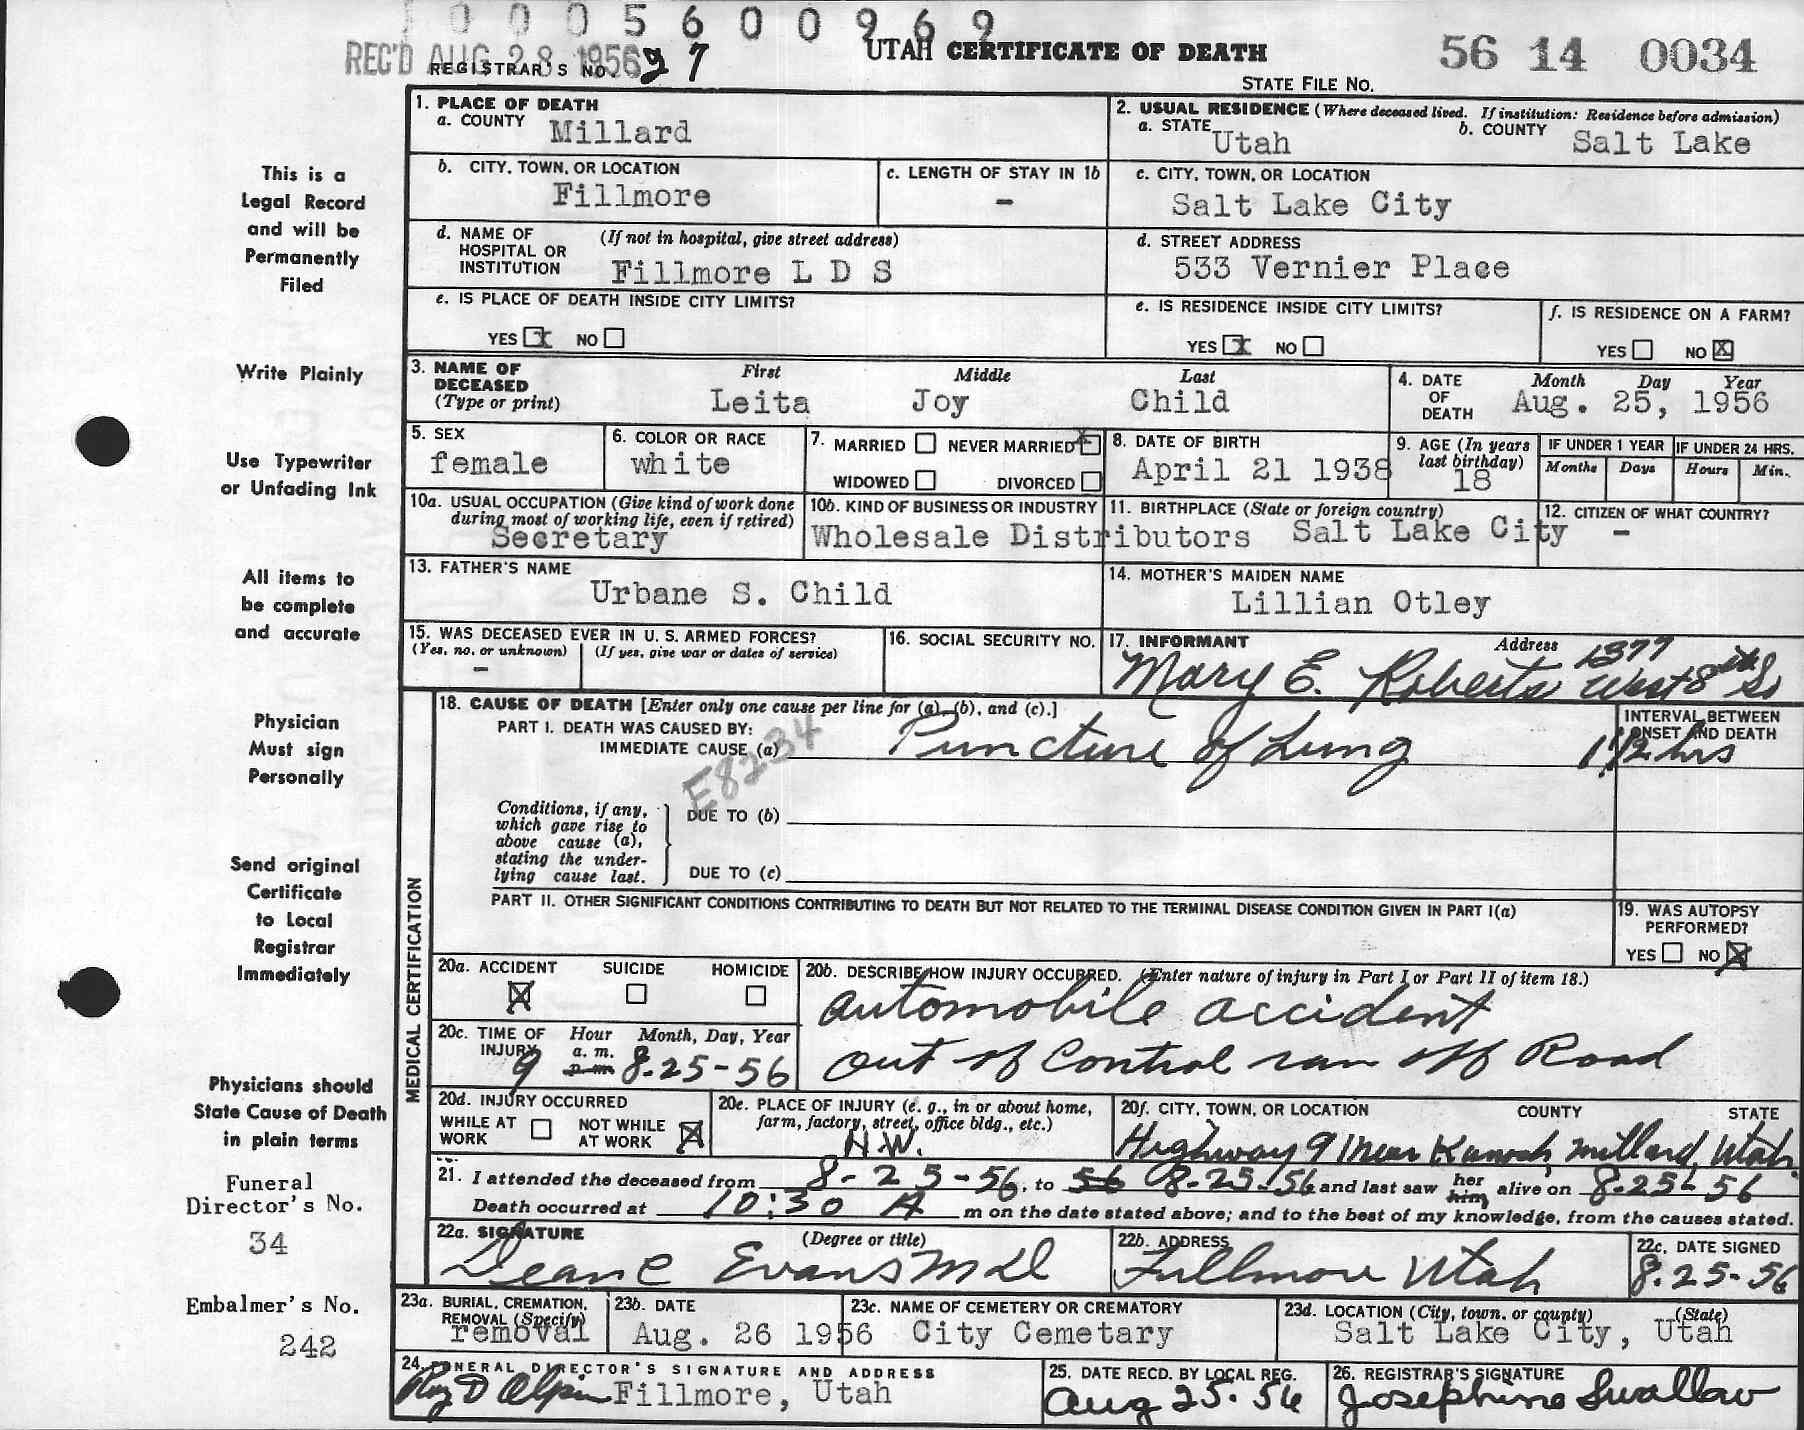 0005600969
REC'D AUG 28 1956
REGISTRAR'S NO. 27
UTAH CERTIFICATE OF DEATH
56 14 0034
STATE FILE NO.
This is a
Legal Record
and will be
Permanently
Filed
Write Plainly
Use Typewriter
or Unfading Ink
All items to
be complete
and accurate
Physician
Must sign
Personally
Send original
Certificate
to Local
Registrar
Immediately
Physicians should
State Cause of Death
in plain terms
Funeral
Director's No.
34
Embalmer's No.
242
1. PLACE OF DEATH
a. COUNTY Millard
2. USUAL RESIDENCE (Where deceased lived. If institution: Residence before admission)
a. STATE Utah b. COUNTY Salt Lake
b. CITY, TOWN, OR LOCATION
Fillmore
c. LENGTH OF STAY IN 1b
-
c. CITY, TOWN, OR LOCATION
Salt Lake City
d. NAME OF HOSPITAL OR INSTITUTION (If not in hospital, give street address)
Fillmore L D S
d. STREET ADDRESS
533 Vernier Place
e. IS PLACE OF DEATH INSIDE CITY LIMITS?
YES X NO
e. IS RESIDENCE INSIDE CITY LIMITS?
YES X NO
f. IS RESIDENCE ON A FARM?
YES NO X
3. NAME OF DECEASED (Type or print)
First Middle Last
Leita Joy Child
4. DATE OF DEATH
Month Day Year
Aug. 25, 1956
5. SEX
female
6. COLOR OR RACE
white
7. MARRIED NEVER MARRIED X
WIDOWED DIVORCED
8. DATE OF BIRTH
April 21 1938
9. AGE (In years last birthday)
18
IF UNDER 1 YEAR
Months Days
IF UNDER 24 HRS.
Hours Min.
10a. USUAL OCCUPATION (Give kind of work done during most of working life, even if retired)
Secretary
10b. KIND OF BUSINESS OR INDUSTRY
Wholesale Distributors
11. BIRTHPLACE (State or foreign country)
Salt Lake City
12. CITIZEN OF WHAT COUNTRY?
-
13. FATHER'S NAME
Urbane S. Child
14. MOTHER'S MAIDEN NAME
Lillian Otley
15. WAS DECEASED EVER IN U. S. ARMED FORCES?
(Yes, no, or unknown) (If yes, give war or dates of service)
-
16. SOCIAL SECURITY NO.
17. INFORMANT Address
Mary E. Roberts 1377 West 8th So
MEDICAL CERTIFICATION
18. CAUSE OF DEATH [Enter only one cause per line for (a), (b), and (c).]
PART I. DEATH WAS CAUSED BY:
IMMEDIATE CAUSE (a) Puncture of Lung
INTERVAL BETWEEN ONSET AND DEATH
1 1/2 hrs
E8234
Conditions, if any, which gave rise to above cause (a), stating the underlying cause last.
DUE TO (b)
DUE TO (c)
PART II. OTHER SIGNIFICANT CONDITIONS CONTRIBUTING TO DEATH BUT NOT RELATED TO THE TERMINAL DISEASE CONDITION GIVEN IN PART I(a)
19. WAS AUTOPSY PERFORMED?
YES NO X
20a. ACCIDENT SUICIDE HOMICIDE
X
20b. DESCRIBE HOW INJURY OCCURRED. (Enter nature of injury in Part I or Part II of item 18.)
automobile accident
out of Control ran off Road
20c. TIME OF INJURY Hour Month, Day, Year
9 a. m. p. m. 8-25-56
20d. INJURY OCCURRED
WHILE AT WORK NOT WHILE AT WORK X
20e. PLACE OF INJURY (e. g., in or about home, farm, factory, street, office bldg., etc.)
H.W.
20f. CITY, TOWN, OR LOCATION COUNTY STATE
Highway 91 near Kanosh, Millard, Utah.
21. I attended the deceased from 8-25-56, to 56 8-25-56 and last saw her him alive on 8-25-56
Death occurred at 10:30 A m on the date stated above; and to the best of my knowledge, from the causes stated.
22a. SIGNATURE (Degree or title)
Dean C Evans MD
22b. ADDRESS
Fillmore Utah
22c. DATE SIGNED
8-25-56
23a. BURIAL, CREMATION, REMOVAL (Specify)
removal
23b. DATE
Aug. 26 1956
23c. NAME OF CEMETERY OR CREMATORY
City Cemetary
23d. LOCATION (City, town, or county) (State)
Salt Lake City, Utah
24. FUNERAL DIRECTOR'S SIGNATURE AND ADDRESS
Fillmore, Utah
25. DATE RECD. BY LOCAL REG.
Aug 25-56
26. REGISTRAR'S SIGNATURE
Josephine Swallow